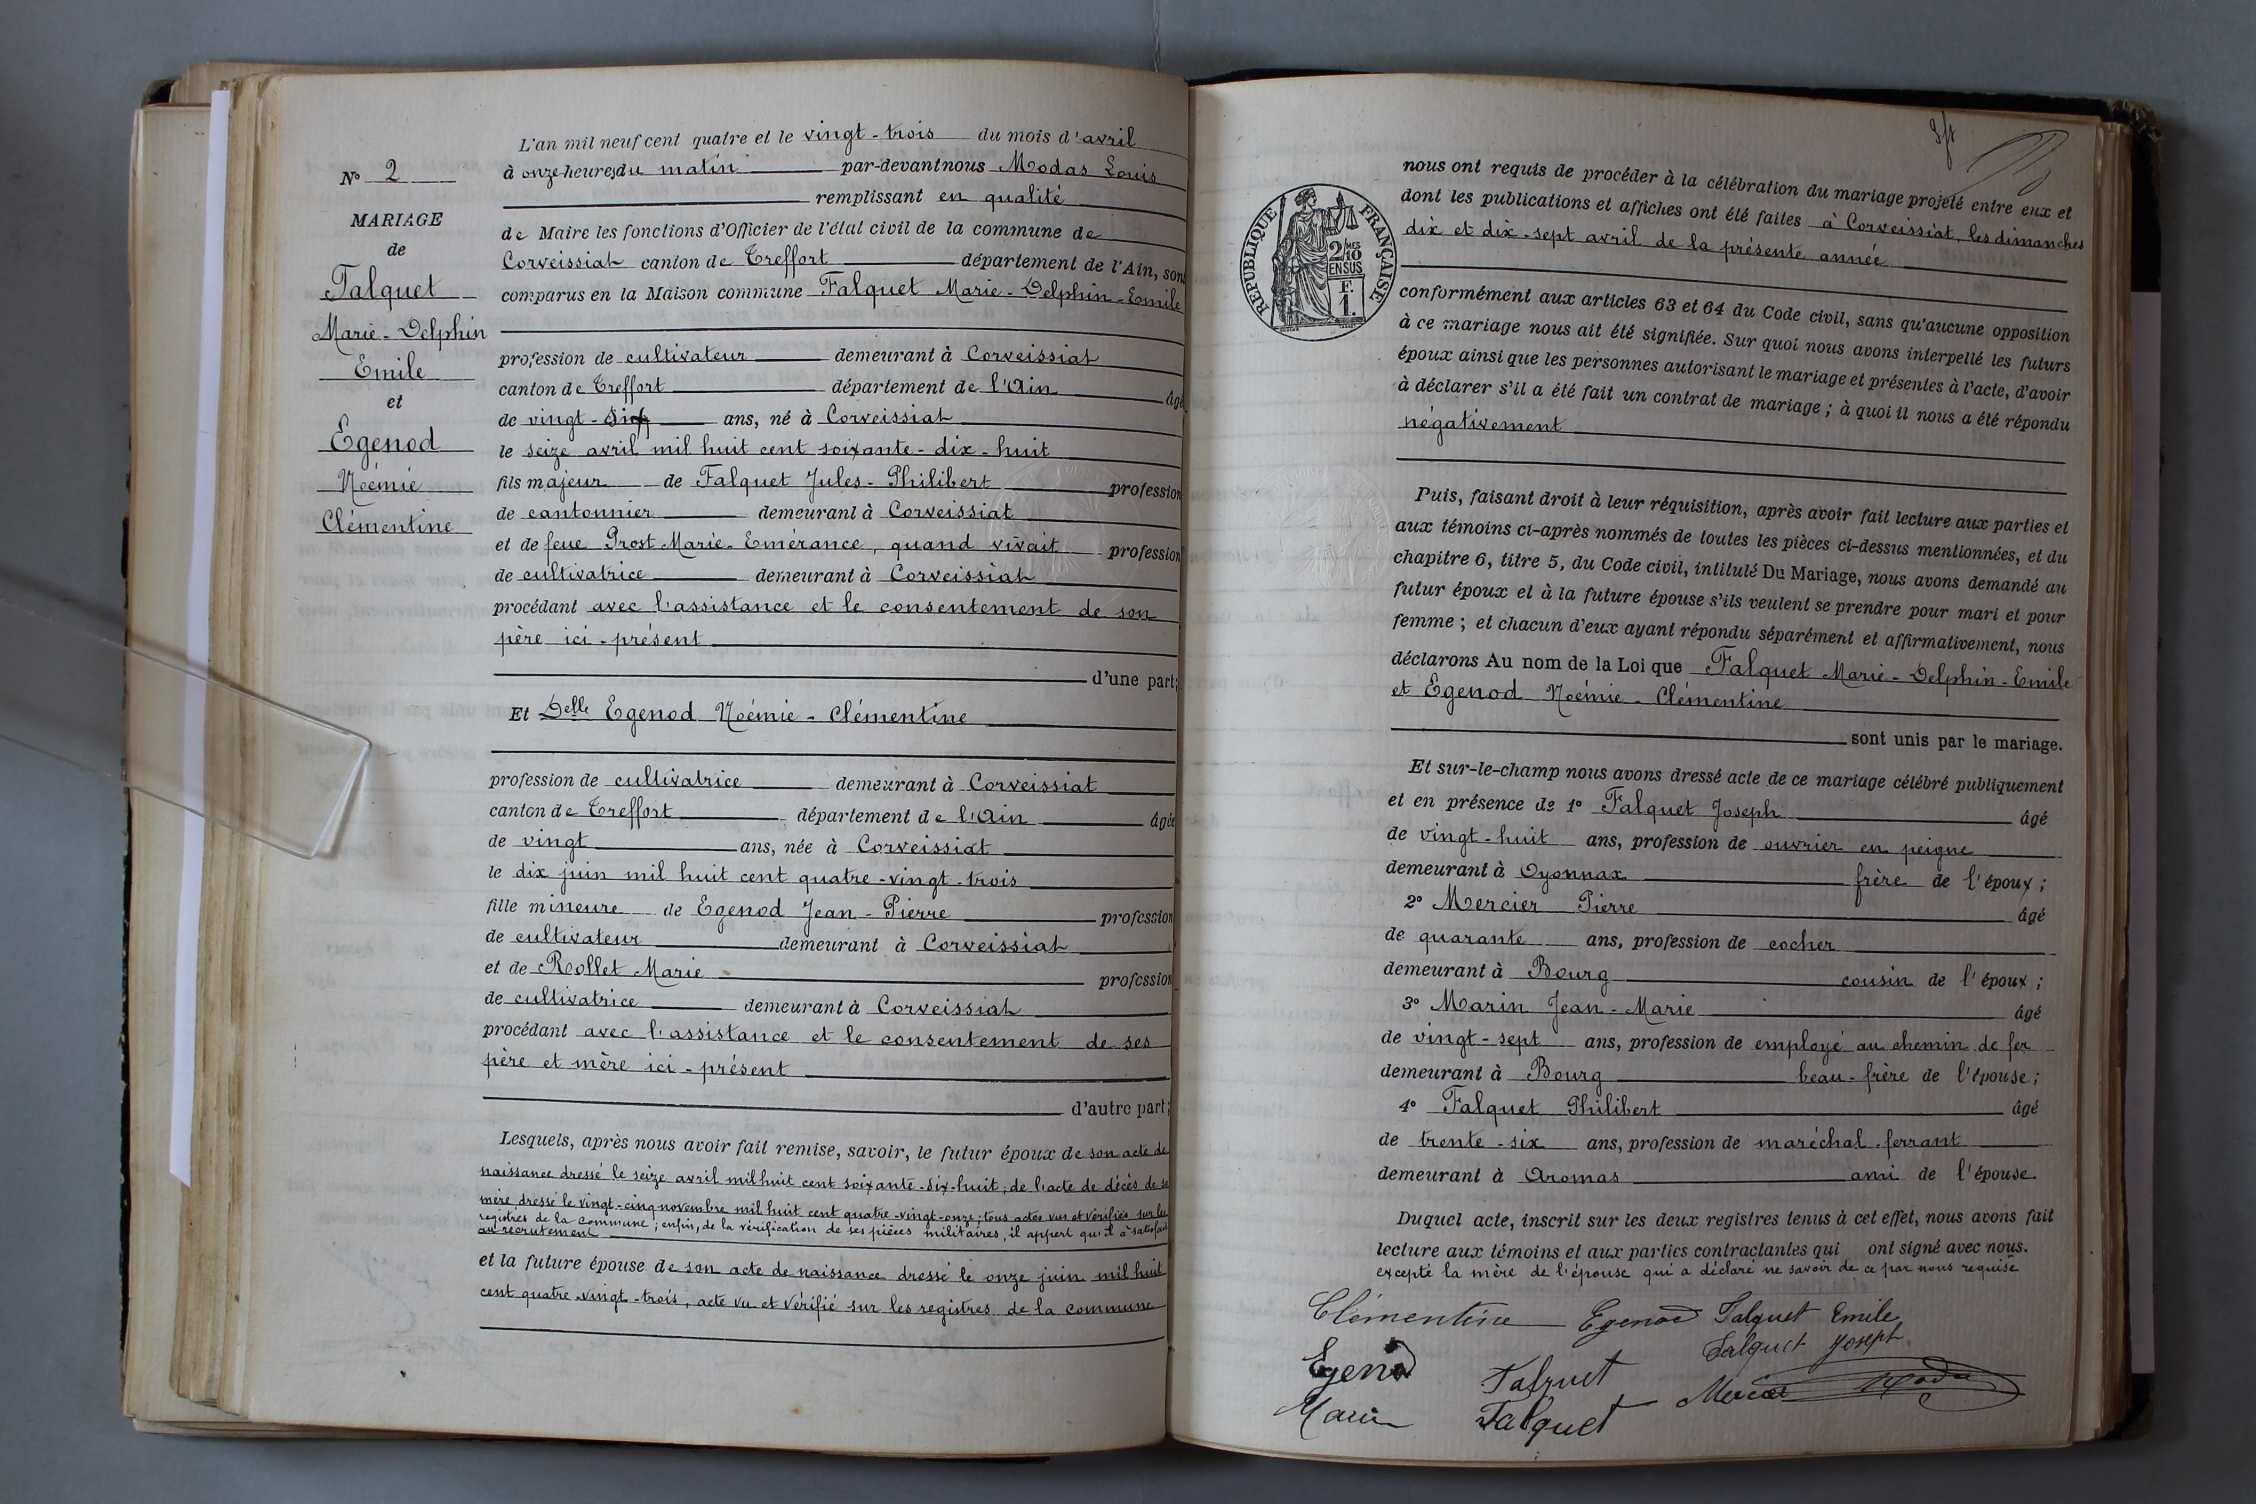 L'an mil neuf cent quatre et le vingt-trois du mois d'avril
à onze heures du matin par-devant nous Modas Louis
remplissant en qualité
de Maire les fonctions d'Officier de l'état civil de la commune de
Corveissiat canton de Treffort département de l'Ain, sont
comparus en la Maison commune Falquet Marie-Delphin-Emile
profession de cultivateur demeurant à Corveissiat
canton de Treffort département de l'Ain âgé
de vingt-six ans, né à Corveissiat
le seize avril mil huit cent soixante-dix-huit
fils majeur de Falquet Jules-Philibert profession
de cantonnier demeurant à Corveissiat
et de feue Prost Marie-Emérance, quand vivait profession
de cultivatrice demeurant à Corveissiat
procédant avec l'assistance et le consentement de son
père ici-présent
d'une part;
Et Delle Egenod Noémie-Clémentine
profession de cultivatrice demeurant à Corveissiat
canton de Treffort département de l'Ain âgée
de vingt ans, née à Corveissiat
le dix juin mil huit cent quatre-vingt-trois
fille mineure de Egenod Jean-Pierre profession
de cultivateur demeurant à Corveissiat
et de Rollet Marie profession
de cultivatrice demeurant à Corveissiat
procédant avec l'assistance et le consentement de ses
père et mère ici-présent
d'autre part;
Lesquels, après nous avoir fait remise, savoir, le futur époux de son acte de
naissance dressé le seize avril mil huit cent soixante-dix-huit; de l'acte de décès de sa
mère dressé le vingt-cinq novembre mil huit cent quatre-vingt-onze; tous actes vus et vérifiés sur les
registres de la commune; enfin, de la vérification de ses pièces militaires, il appert qu'il a satisfait
au recrutement
et la future épouse de son acte de naissance dressé le onze juin mil huit
cent quatre-vingt-trois, acte vu et vérifié sur les registres de la commune
N° 2
MARIAGE
de
Falquet
Marie-Delphin
Emile
et
Egenod
Noémie
Clémentine
RÉPUBLIQUE FRANÇAISE
2/10 MES
EN SUS
F.
1.
nous ont requis de procéder à la célébration du mariage projeté entre eux et
dont les publications et affiches ont été faites à Corveissiat, les dimanches
dix et dix-sept avril de la présente année
conformément aux articles 63 et 64 du Code civil, sans qu'aucune opposition
à ce mariage nous ait été signifiée. Sur quoi nous avons interpellé les futurs
époux ainsi que les personnes autorisant le mariage et présentes à l'acte, d'avoir
à déclarer s'il a été fait un contrat de mariage; à quoi il nous a été répondu
négativement
Puis, faisant droit à leur réquisition, après avoir fait lecture aux parties et
aux témoins ci-après nommés de toutes les pièces ci-dessus mentionnées, et du
chapitre 6, titre 5, du Code civil, intitulé Du Mariage, nous avons demandé au
futur époux et à la future épouse s'ils veulent se prendre pour mari et pour
femme; et chacun d'eux ayant répondu séparément et affirmativement, nous
déclarons Au nom de la Loi que Falquet Marie-Delphin-Emile
et Egenod Noémie-Clémentine
sont unis par le mariage.
Et sur-le-champ nous avons dressé acte de ce mariage célébré publiquement
et en présence de 1° Falquet Joseph âgé
de vingt-huit ans, profession de ouvrier en peigne
demeurant à Oyonnax frère de l'époux;
2° Mercier Pierre âgé
de quarante ans, profession de cocher
demeurant à Bourg cousin de l'époux;
3° Marin Jean-Marie âgé
de vingt-sept ans, profession de employé au chemin de fer
demeurant à Bourg beau-frère de l'épouse;
4° Falquet Philibert âgé
de trente-six ans, profession de maréchal-ferrant
demeurant à Aromas ami de l'épouse.
Duquel acte, inscrit sur les deux registres tenus à cet effet, nous avons fait
lecture aux témoins et aux parties contractantes qui ont signé avec nous.
excepté la mère de l'épouse qui a déclaré ne savoir de ce par nous requise
Clémentine Egenod Falquet Emile
Falquet Joseph
Egenod Falquet
Mercier Modas
Marin Falquet